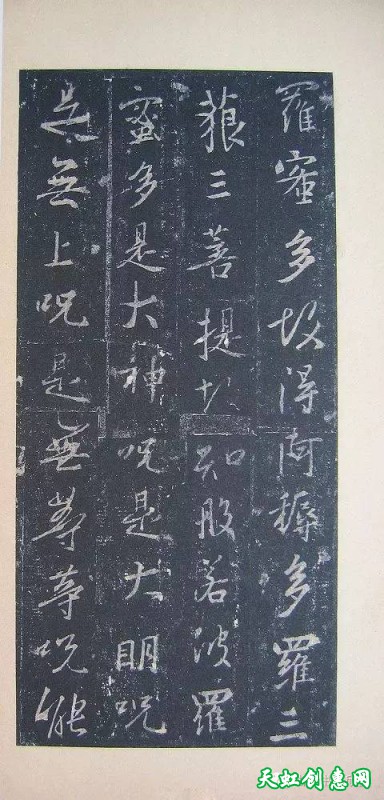 羅蜜多故得阿耨多羅三
藐三菩提故知般若波羅
蜜多是大神呪是大明呪
是無上呪是無等等呪能
天虹创惠网